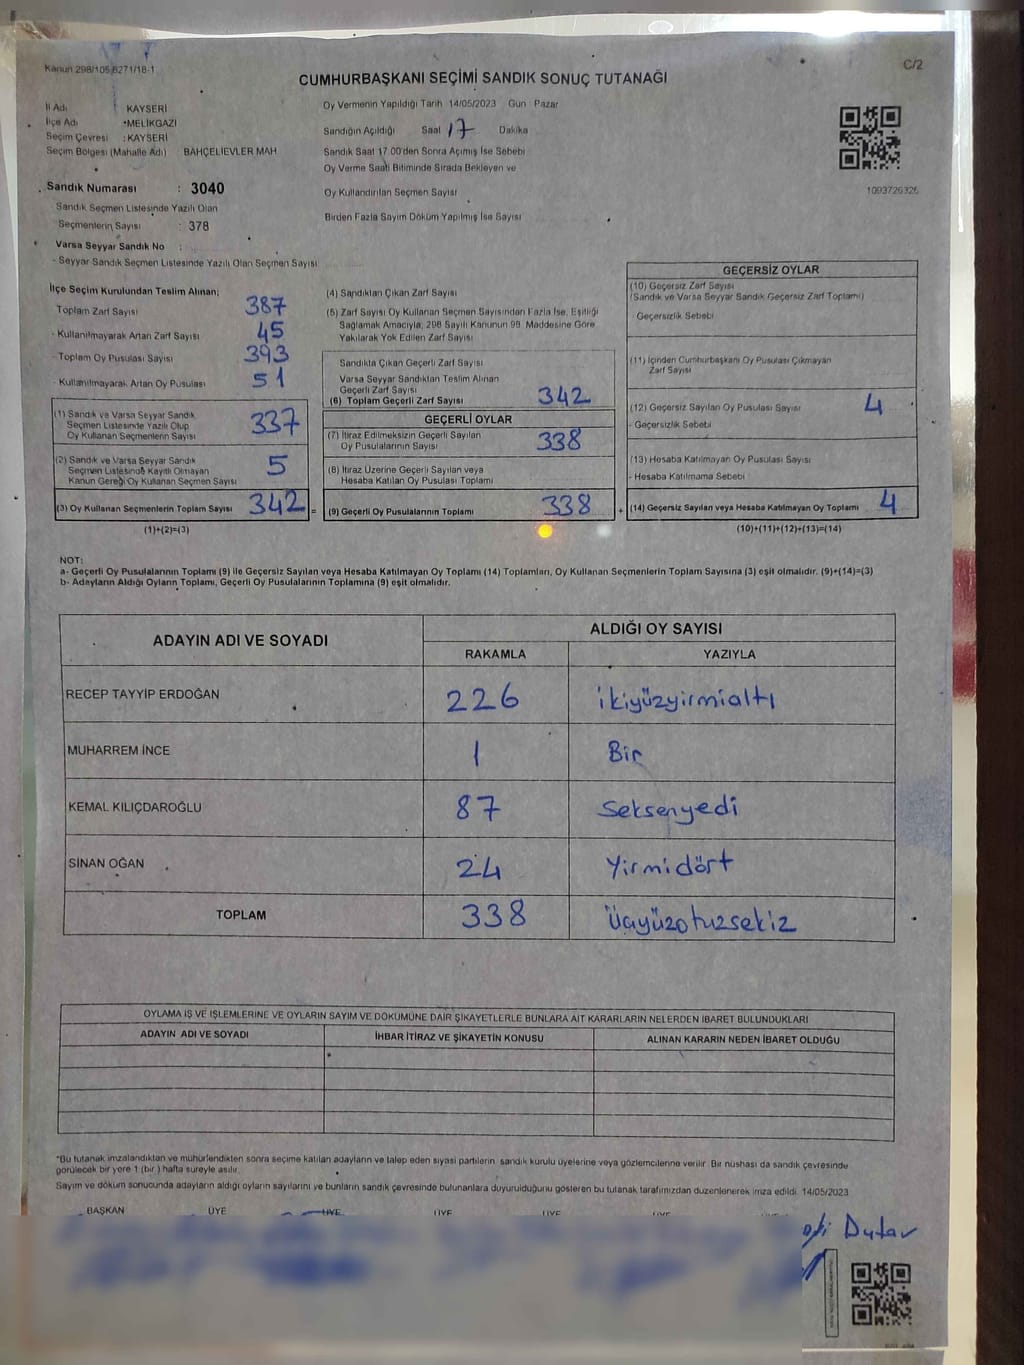 Kanun 298/105,6271/18-1
C/2
CUMHURBAŞKANI SEÇİMİ SANDIK SONUÇ TUTANAĞI
İl Adı : KAYSERİ
İlçe Adı : MELİKGAZİ
Seçim Çevresi : KAYSERİ
Seçim Bölgesi (Mahalle Adı) BAHÇELİEVLER MAH.
Sandık Numarası : 3040
Sandık Seçmen Listesinde Yazılı Olan
Seçmenlerin Sayısı : 378
Varsa Seyyar Sandık No :
- Seyyar Sandık Seçmen Listesinde Yazılı Olan Seçmen Sayısı
Oy Vermenin Yapıldığı Tarih 14/05/2023 Gün Pazar
Sandığın Açıldığı Saat 17 Dakika
Sandık Saat 17.00'den Sonra Açımış İse Sebebi
Oy Verme Saati Bitiminde Sırada Bekleyen ve
Oy Kullandırılan Seçmen Sayısı
Birden Fazla Sayım Döküm Yapılmış İse Sayısı
1093726326
İlçe Seçim Kurulundan Teslim Alınan;
Toplam Zarf Sayısı 387
- Kullanılmayarak Artan Zarf Sayısı 45
- Toplam Oy Pusulası Sayısı 393
- Kullanılmayarak Artan Oy Pusulası 51
(1) Sandık ve Varsa Seyyar Sandık
Seçmen Listesinde Yazılı Olup
Oy Kullanan Seçmenlerin Sayısı 337
(2) Sandık ve Varsa Seyyar Sandık
Seçmen Listesinde Kayıtlı Olmayan
Kanun Gereği Oy Kullanan Seçmen Sayısı 5
(3) Oy Kullanan Seçmenlerin Toplam Sayısı 342 =
(1)+(2)=(3)
(4) Sandıktan Çıkan Zarf Sayısı
(5) Zarf Sayısı Oy Kullanan Seçmen Sayısından Fazla İse, Eşitliği
Sağlamak Amacıyla, 298 Sayılı Kanunun 98. Maddesine Göre
Yakılarak Yok Edilen Zarf Sayısı
Sandıkta Çıkan Geçerli Zarf Sayısı
Varsa Seyyar Sandıktan Teslim Alınan
Geçerli Zarf Sayısı
(6) Toplam Geçerli Zarf Sayısı 342
GEÇERLİ OYLAR
(7) İtiraz Edilmeksizin Geçerli Sayılan
Oy Pusulalarının Sayısı 338
(8) İtiraz Üzerine Geçerli Sayılan veya
Hesaba Katılan Oy Pusulası Toplamı
(9) Geçerli Oy Pusulalarının Toplamı 338 +
GEÇERSİZ OYLAR
(10) Geçersiz Zarf Sayısı
(Sandık ve Varsa Seyyar Sandık Geçersiz Zarf Toplamı)
- Geçersizlik Sebebi
(11) İçinden Cumhurbaşkanı Oy Pusulası Çıkmayan
Zarf Sayısı
(12) Geçersiz Sayılan Oy Pusulası Sayısı 4
- Geçersizlik Sebebi
(13) Hesaba Katılmayan Oy Pusulası Sayısı
- Hesaba Katılmama Sebebi
(14) Geçersiz Sayılan veya Hesaba Katılmayan Oy Toplamı 4
(10)+(11)+(12)+(13)=(14)
NOT:
a- Geçerli Oy Pusulalarının Toplamı (9) ile Geçersiz Sayılan veya Hesaba Katılmayan Oy Toplamı (14) Toplamları, Oy Kullanan Seçmenlerin Toplam Sayısına (3) eşit olmalıdır. (9)+(14)=(3)
b- Adayların Aldığı Oyların Toplamı, Geçerli Oy Pusulalarının Toplamına (9) eşit olmalıdır.
ADAYIN ADI VE SOYADI ALDIĞI OY SAYISI
RAKAMLA YAZIYLA
RECEP TAYYİP ERDOĞAN 226 ikiyüzyirmialtı
MUHARREM İNCE 1 Bir
KEMAL KILIÇDAROĞLU 87 Seksenyedi
SİNAN OĞAN 24 Yirmidört
TOPLAM 338 Üçyüzotuzsekiz
OYLAMA İŞ VE İŞLEMLERİNE VE OYLARIN SAYIM VE DÖKÜMÜNE DAİR ŞİKAYETLERLE BUNLARA AİT KARARLARIN NELERDEN İBARET BULUNDUKLARI
ADAYIN ADI VE SOYADI İHBAR İTİRAZ VE ŞİKAYETİN KONUSU ALINAN KARARIN NEDEN İBARET OLDUĞU
*Bu tutanak imzalandıktan ve mühürlendikten sonra seçime katılan adayların ve talep eden siyasi partilerin sandık kurulu üyelerine veya gözlemcilerine verilir. Bir nüshası da sandık çevresinde
görülecek bir yere 1 (bir) hafta süreyle asılır.
Sayım ve döküm sonucunda adayların aldığı oyların sayılarını ve bunların sandık çevresinde bulunanlara duyurulduğunu gösteren bu tutanak tarafımızdan düzenlenerek imza edildi. 14/05/2023
BAŞKAN ÜYE ÜYE ÜYE ÜYE ÜYE